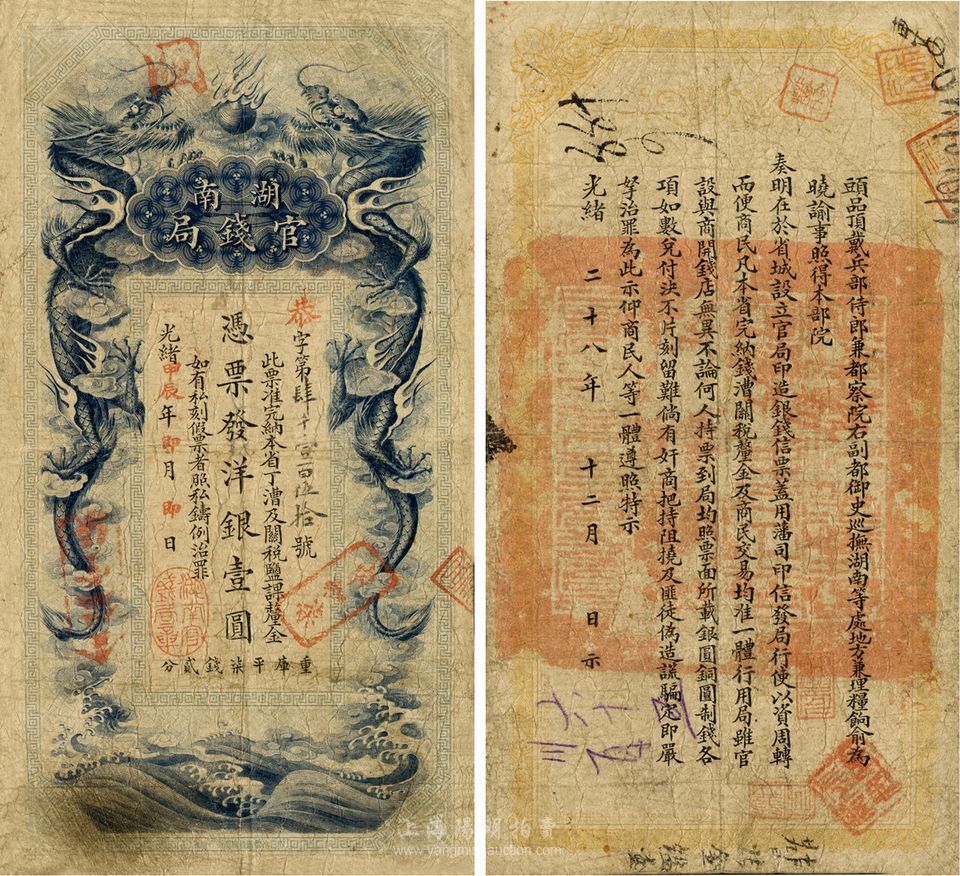 湖南
官錢局
恭字第肆千壹百伍拾號
此票准完納本省丁漕及關稅鹽課釐金
憑票發洋銀壹圓
如有私刻假票者照私鑄例治罪
光緒甲辰年即月即日
重庫平柒錢貳分
頭品頂戴兵部侍郎兼都察院右副都御史巡撫湖南等處地方兼理糧餉俞為
曉諭事照得本部院
奏明在於省城設立官局印造銀錢信票蓋用藩司印信發局行使以資周轉
而便商民凡本省完納錢漕關稅釐金及商民交易均准一體行用局雖官
設與商開錢店無異不論何人持票到局均照票面所載銀圓銅圓制錢各
項如數兌付決不片刻留難倘有奸商把持阻撓及匪徒偽造謊騙定即嚴
拏治罪為此示仰商民人等一體遵照特示
光緒二十八年十二月日示
上海陽明拍賣
www.yangmingauction.com